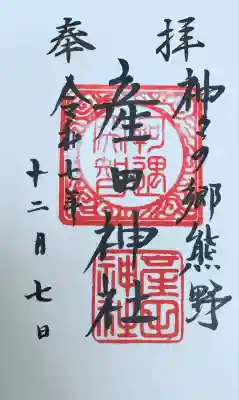 奉拝
神々の郷熊野
産田神社
令和七年
十二月七日
産田神社